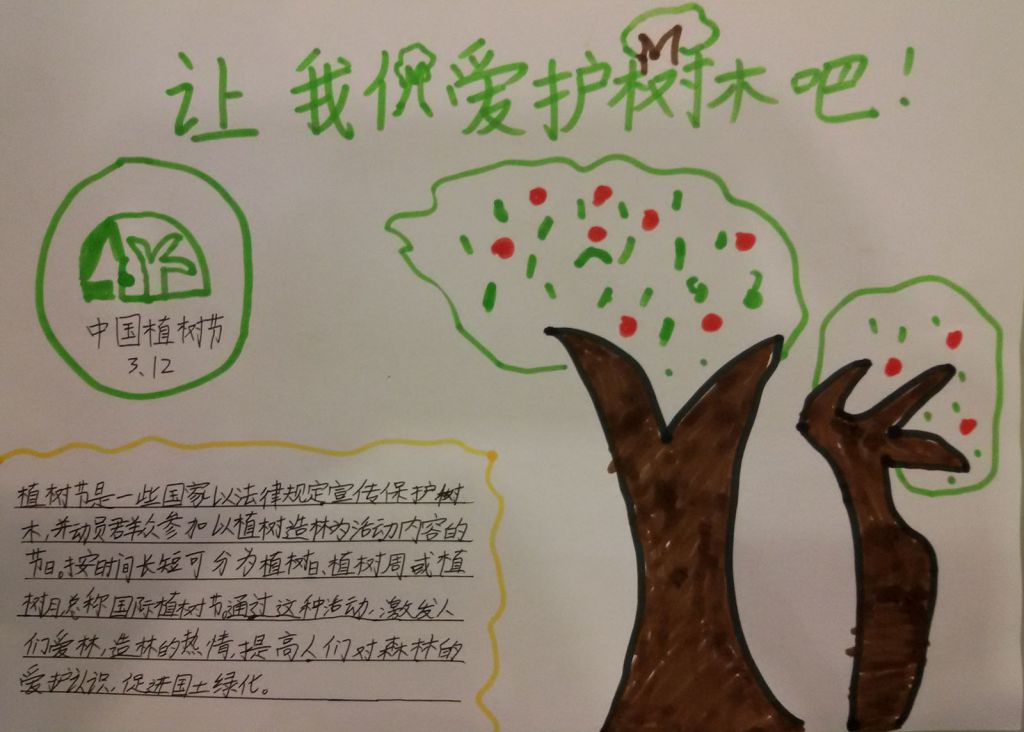 让我们爱护树木吧！
中国植树节
3.12
植树节是一些国家以法律规定宣传保护树
木,并动员群众参加以植树造林为活动内容的
节日。按时间长短可分为植树日、植树周或植
树月总称国际植树节。通过这种活动,激发人
们爱林,造林的热情,提高人们对森林的
爱护认识,促进国土绿化。